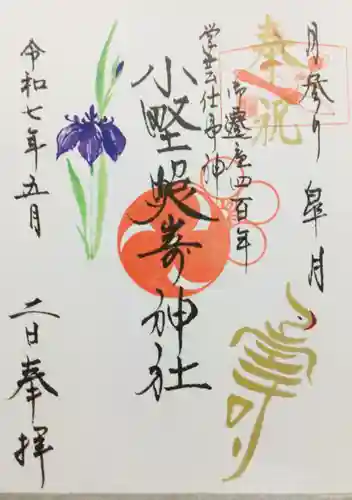 月参り 皐月
奉祝
御遷座四百年
学芸仕事神
小野照崎神社
令和七年五月
二日奉拝